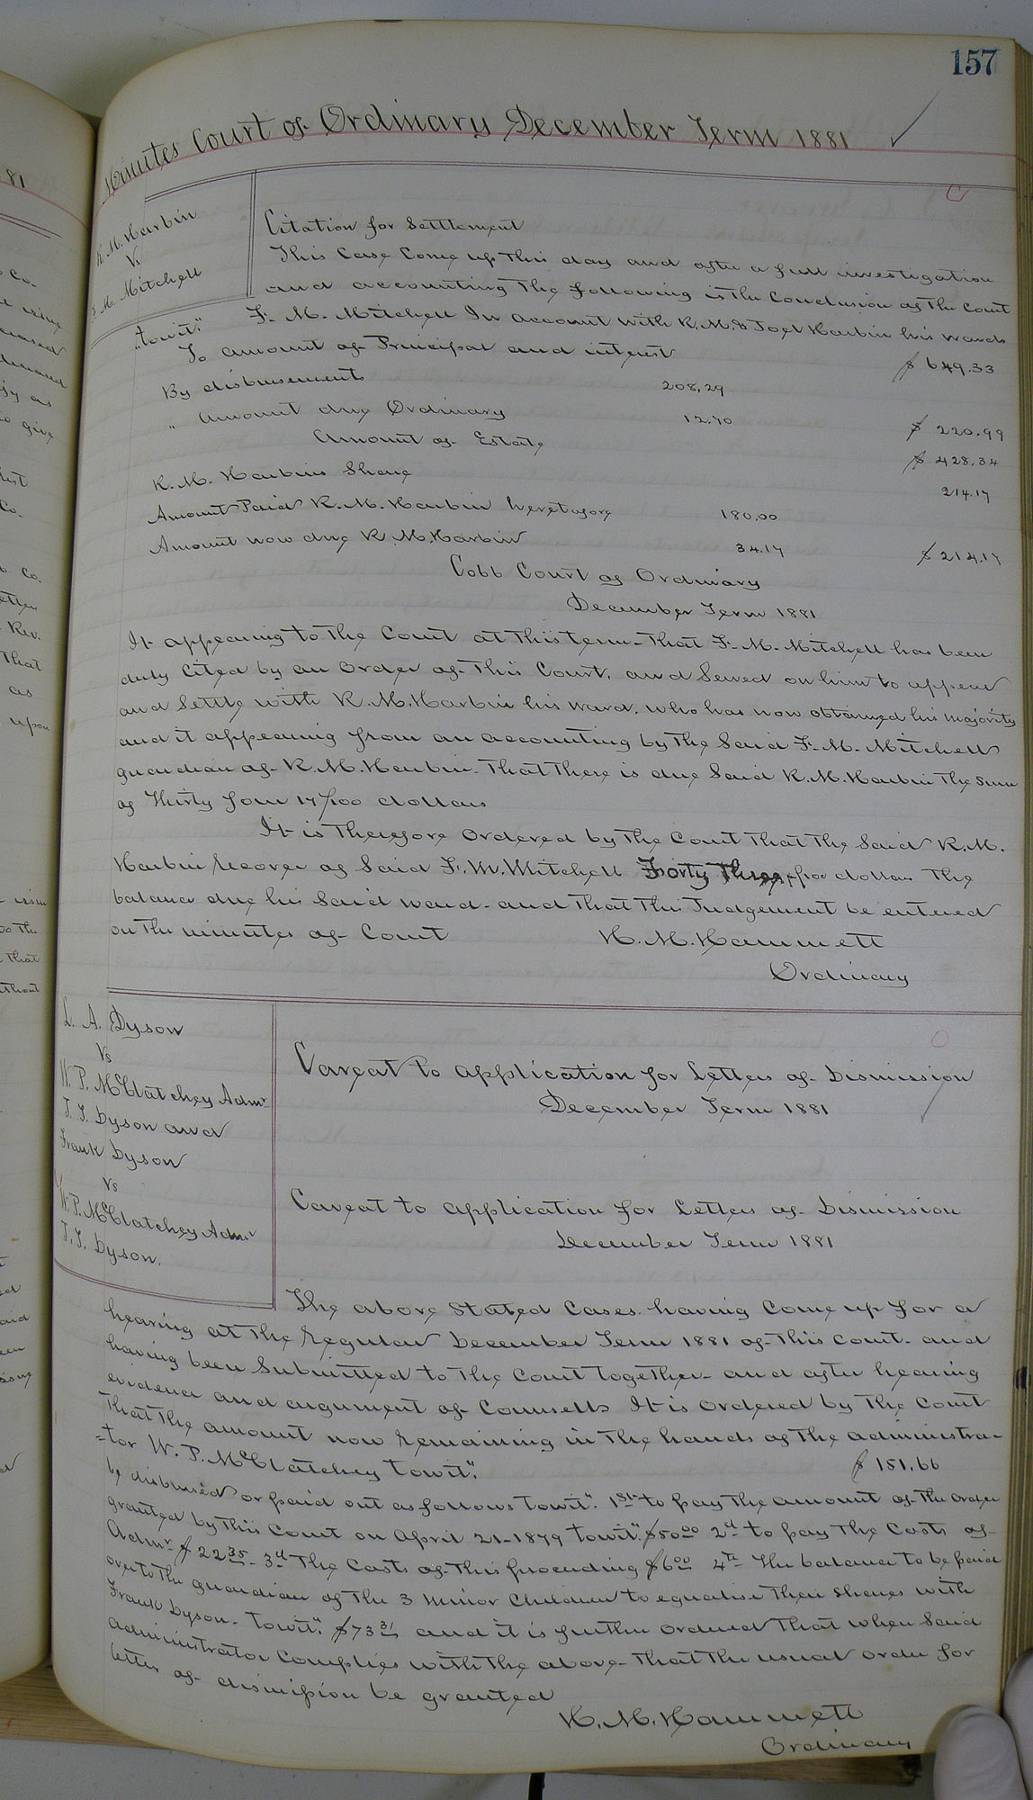 157
Minutes Court of Ordinary December Term 1881
R. M. Harbin
Vs
F. M. Mitchell
Citation for Settlement
This Case Come up this day and after a full investigation
and accounting The following is the Conclusion of the Court
"towit" F. M. Mitchell In account with R. M. & Joel Harbin his wards
To amount of Principal and interest $649.33
By disbursements 208.29
" Amount due Ordinary 12.70 $220.99
Amount of Estate $428.34
R. M. Harbins Share 214.17
Amount Paid R. M. Harbin heretofore 180.00
Amount now due R. M. Harbin 34.17 $214.17
Cobb Court of Ordinary
December Term 1881
It appearing to the Court at this term that F. M. Mitchell has been
duly Cited by an Order of this Court, and Served on him to appear
and Settle with R. M. Harbin his ward, who has now obtained his majority
and it appearing from an accounting by the Said F. M. Mitchell
guardian of R. M. Harbin that there is due Said R. M. Harbin the Sum
of Thirty four 17/100 dollars
It is therefore Ordered by the Court that the Said R. M.
Harbin recover of Said F. M. Mitchell Forty Three /100 dollars The
balance due his Said ward and that this Judgement be entered
on the minutes of Court H. M. Hammett
Ordinary
L. A. Dyson
Vs
W. P. McClatchey Admr
T. J. Dyson and
Frank Dyson
Vs
W. P. McClatchey Admr
T. J. Dyson.
Caveat to application for Letters of Dismission
December Term 1881
Caveat to application for Letters of Dismission
December Term 1881
The above Stated Cases having Come up for a
hearing at the regular December Term 1881 of this Court and
having been Submitted to the Court together and after hearing
evidence and argument of Counsells It is Ordered by the Court
That the amount now remaining in the hands of the administra-
=tor W. P. McClatchey towit". $151.66
be disbursed or paid out as follows towit". 1st to pay the amount of the order
granted by this Court on April 21-1879 towit". $50 00 2d to pay the Costs of
Admr $22 35 3d The Costs of this proceeding $6 00 4th The balance to be paid
over to the guardian of the 3 minor Children to equalise their Shares with
Frank Dyson. towit". $73 31 and it is further Ordered that when Said
administrator Complies with the above that the usual order for
letters of dismission be granted
H. M. Hammett
Ordinary